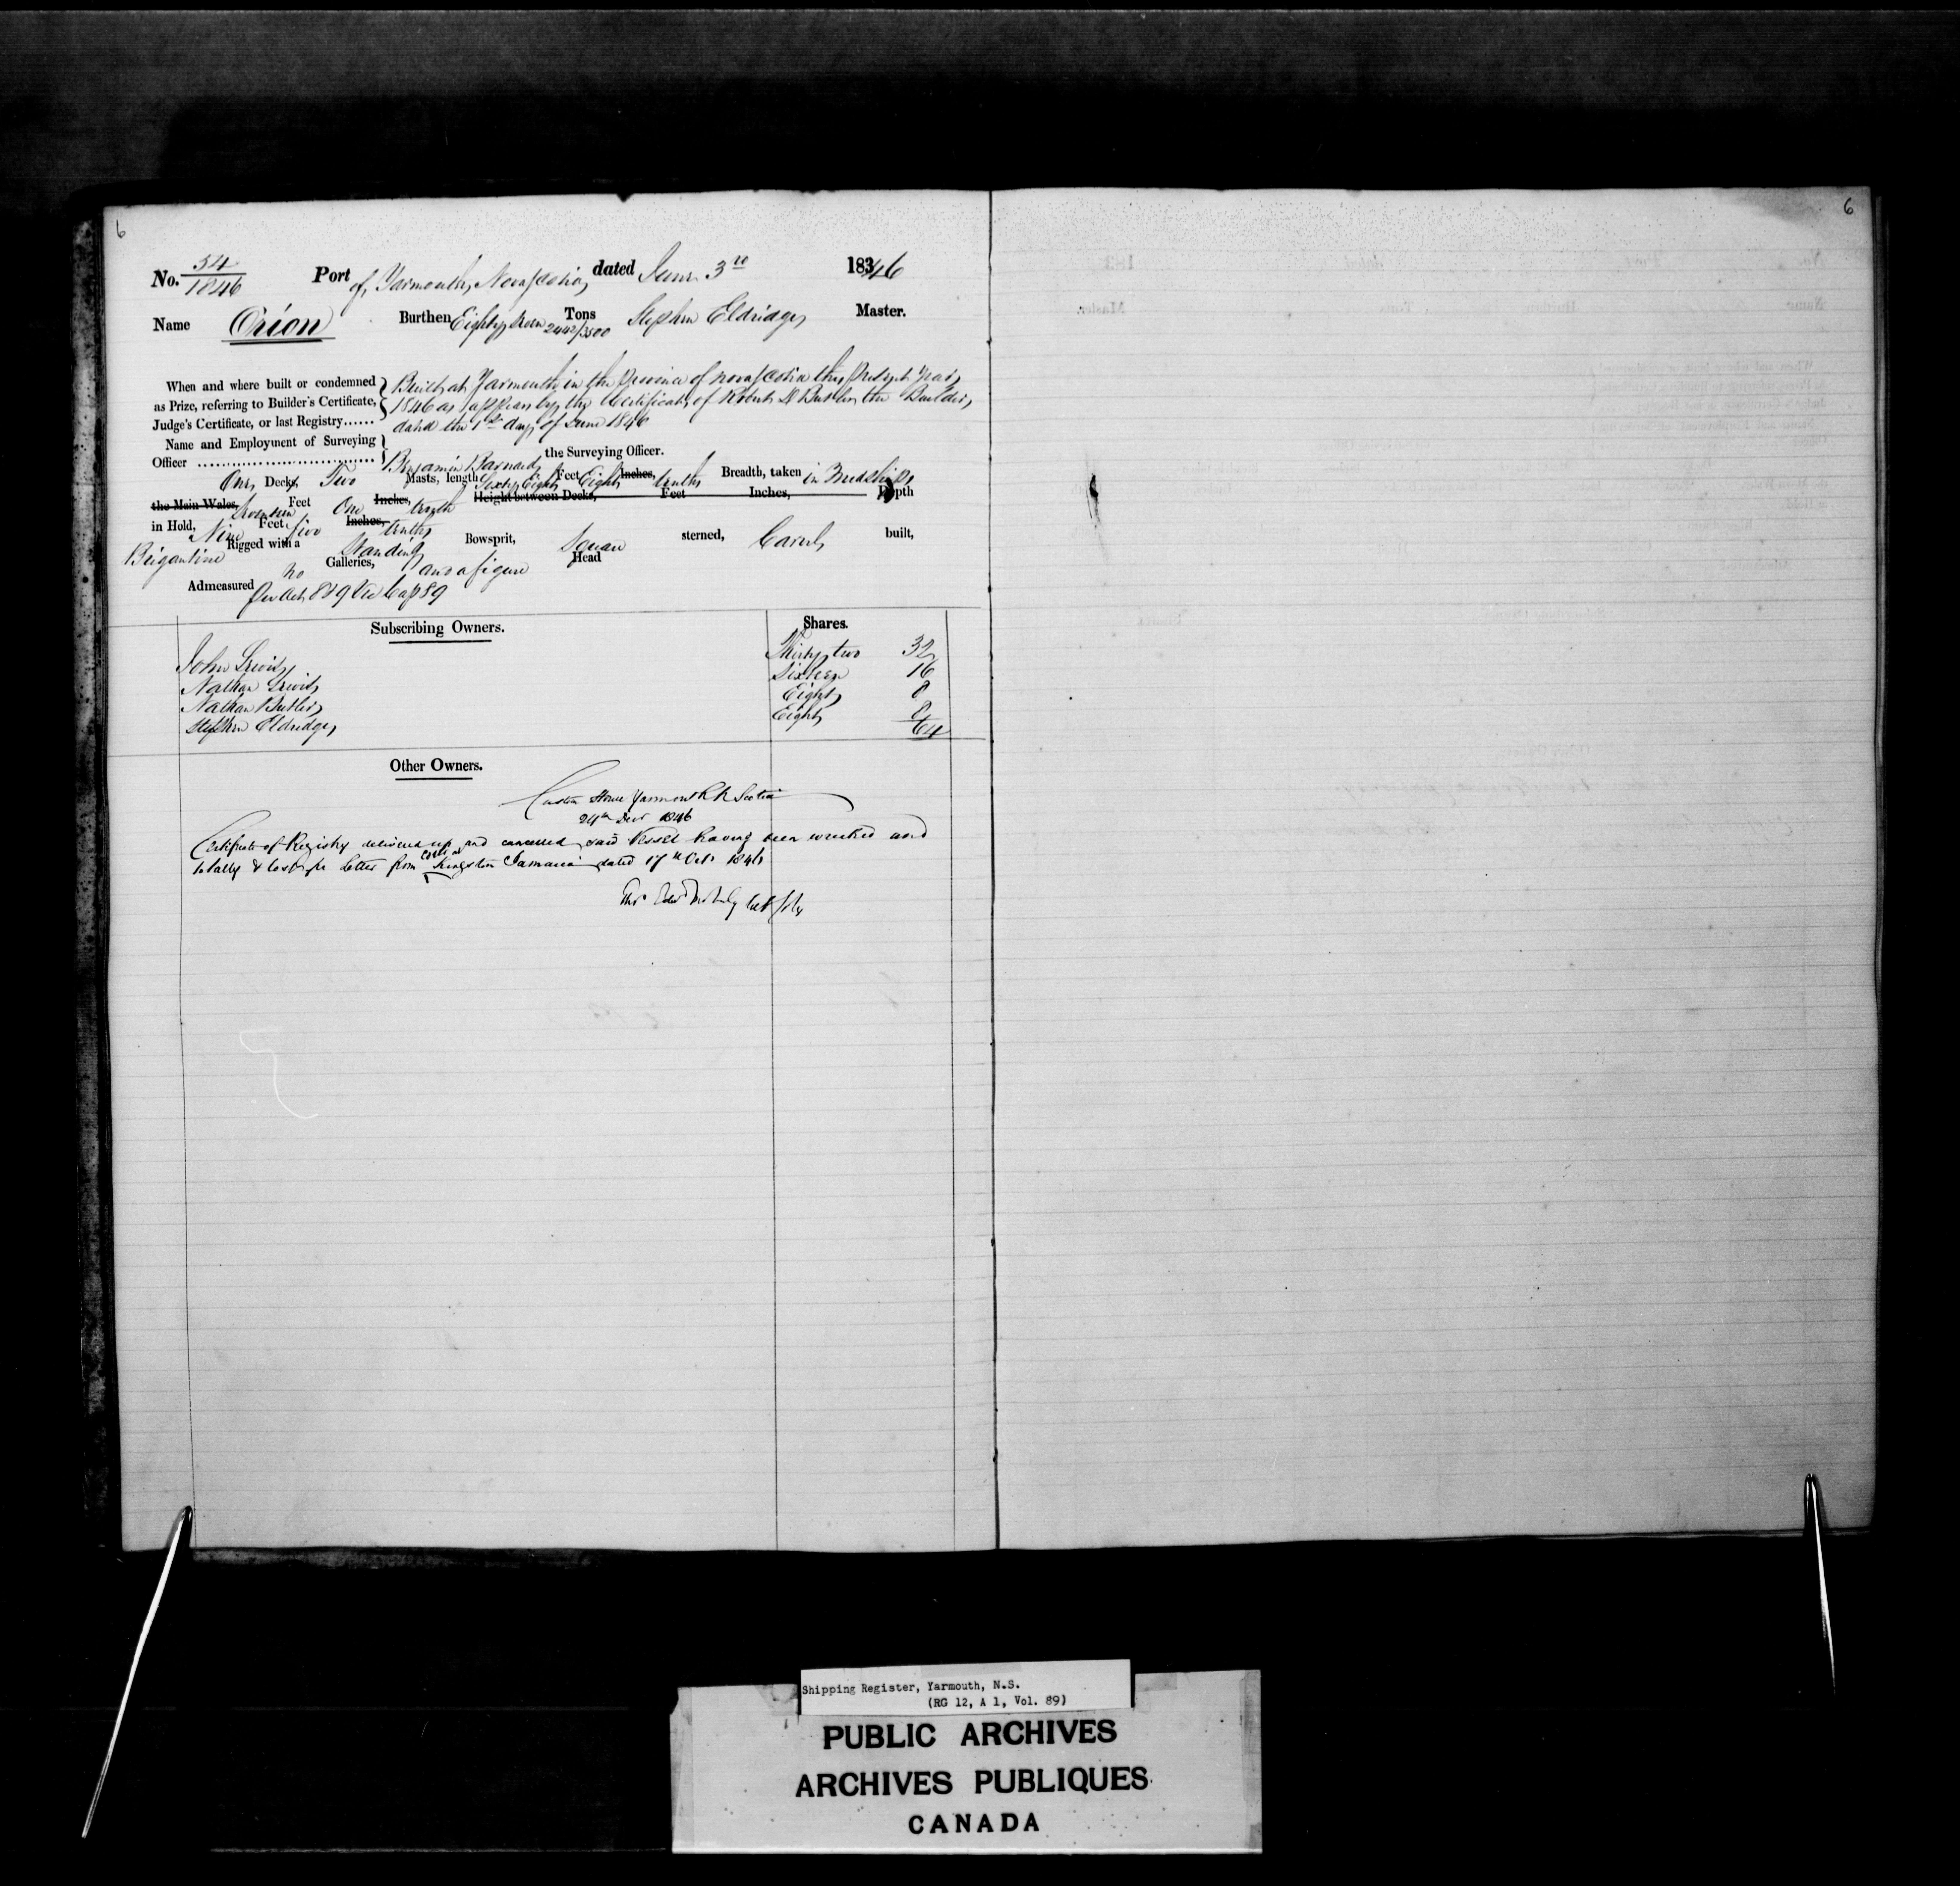 6
6
No. 54/1846 Port of Yarmouth, Nova Scotia, dated June 3rd 1846
Name Orion Burthen Eighty Seven 2442/3500 Tons Stephen Eldridge, Master.
When and where built or condemned as Prize, referring to Builder's Certificate, Judge's Certificate, or last Registry......
Built at Yarmouth in the Province of Nova Scotia this present year,
1846 as appears by the Certificate of Robert Butler the Builder,
dated the 1st day of June 1846
Name and Employment of Surveying Officer
Benjamin Barnard, the Surveying Officer.
One Decks, Two Masts, length Sixty Eight Feet Eight Inches, tenths Breadth, taken in Midships
the Main Wales, Seventeen Feet One Inches, tenth Height between Decks, Feet Inches, Depth
in Hold, Nine Feet five Inches, tenths
Brigantine Rigged with a Standing Bowsprit, Square sterned, Carvel built,
no Galleries, and a figure Head
Admeasured Per Act 8 & 9 Vic Cap 89
Subscribing Owners. Shares.
John Lewis, Thirty two 32
Nathan Lewis, Sixteen 16
Nathan Butler, Eight 8
Stephen Eldridge, Eight 8
64
Other Owners.
Custom House Yarmouth N Scotia
24th Decr 1846
Certificate of Registry delivered up and cancelled said Vessel having been wrecked and
totally lost pr letter from Kingston Jamaica dated 17th Octr 1846
Shipping Register, Yarmouth, N.S.
(RG 12, A 1, Vol. 89)
PUBLIC ARCHIVES
ARCHIVES PUBLIQUES
CANADA